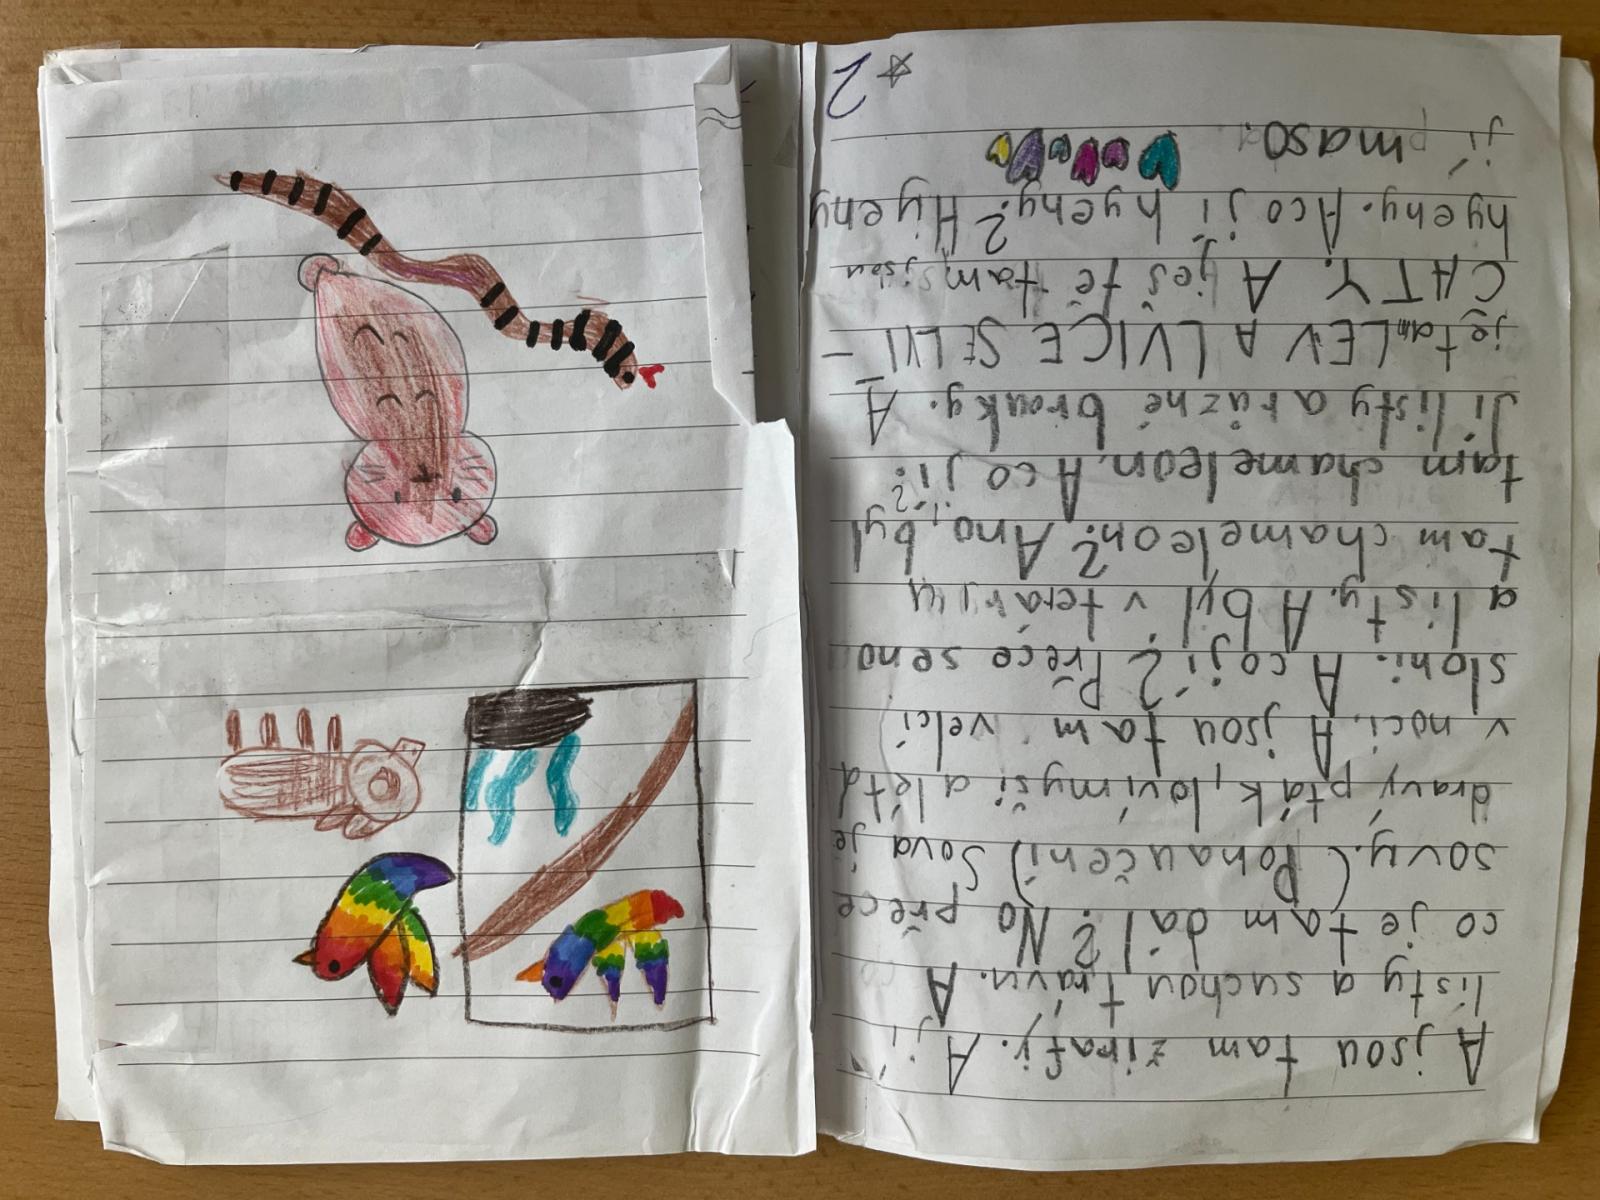 A jsou tam žirafy. A jí
listy a suchou trávu. A
co je tam dál? No přece
sovy. (Ponaučení) Sova je
dravý pták, loví myši a létá
v noci. A jsou tam velcí
sloni. A co jí? Přece seno
a listy. A byl v teráryu
tam chameleon? Ano, byl
tam chameleon. A co jí?
Jí listy a různé brouky. A
je tam LEV A LVICE SE LVÍ-
CATY. A ještě tam jsou
hyeny. A co jí hyeny? Hyeny
jí maso.
2